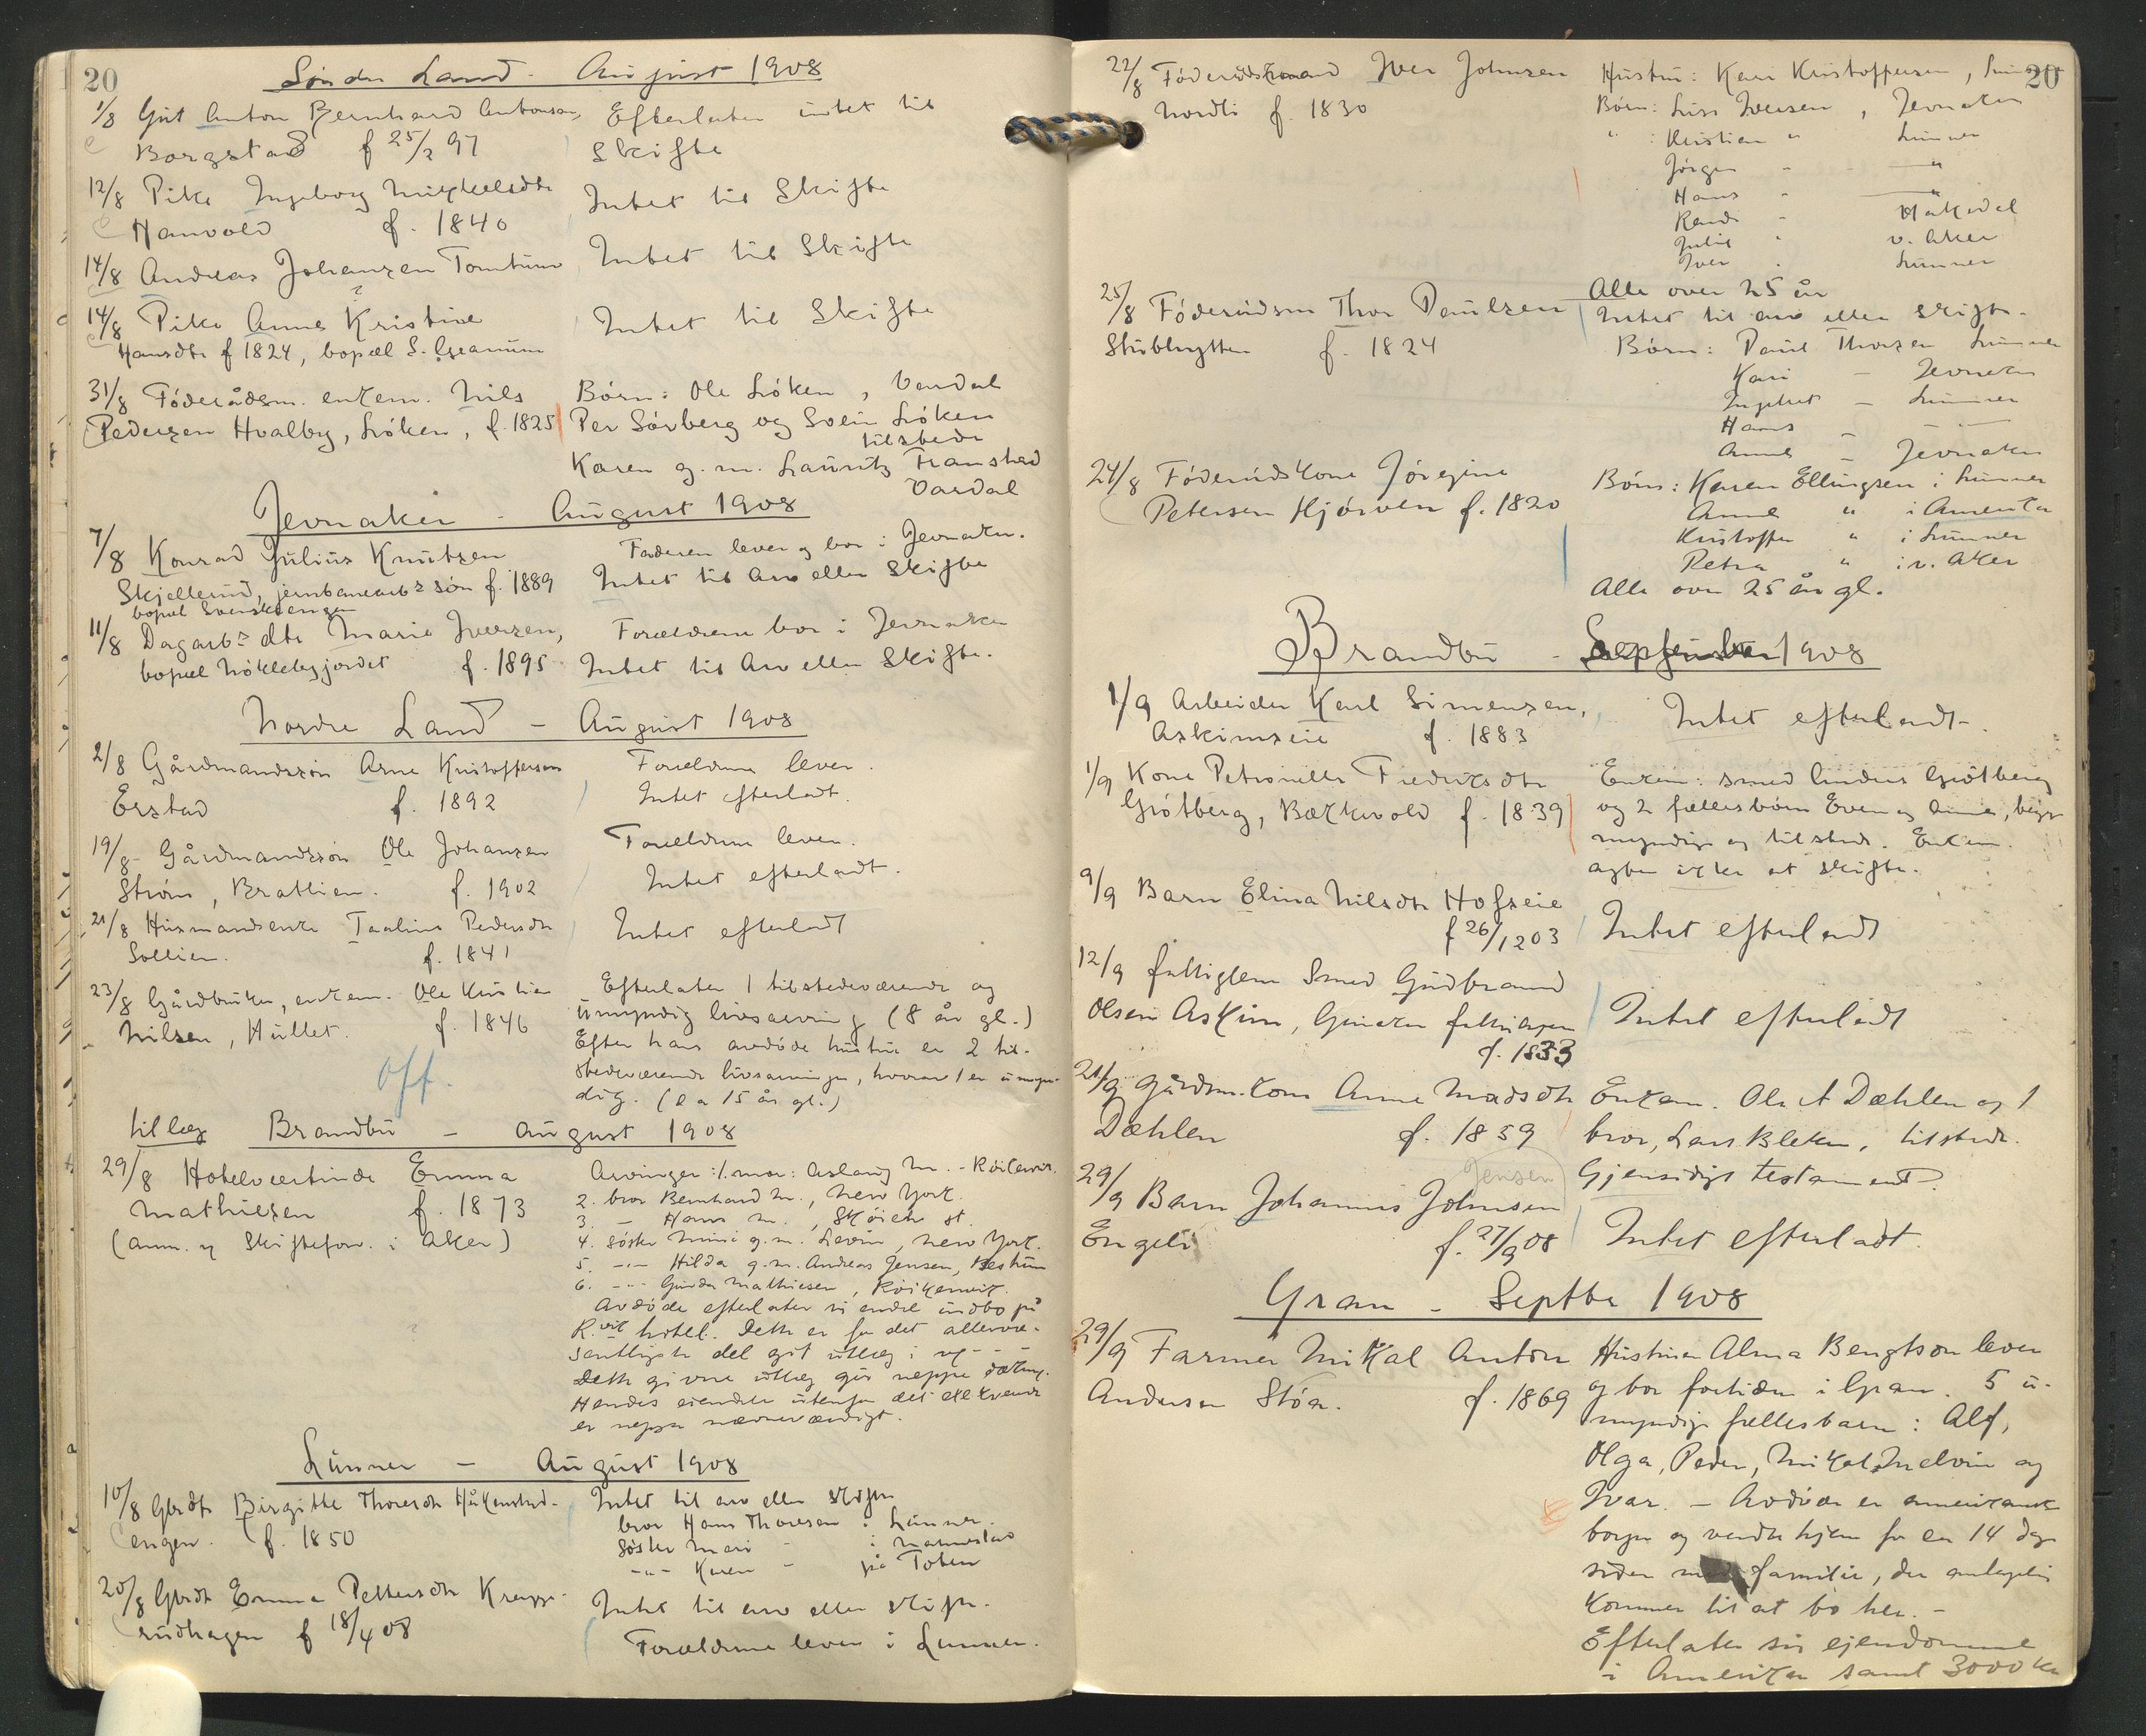 20
Søndre Land - August 1908
1/8 Gut Anton Bernhard Antonsen, Efterlater intet til
Borgstad f 25/2 97 Skifte
12/8 Pike Ingeborg Mikkelsdtr Intet til Skifte
Hanvold f. 1840
14/8 Andreas Johansen Tomtum Intet til Skifte
?
14/8 Pike Anne Kristine Intet til Skifte
Hansdtr f 1824, bopæl S.
31/8 Føderådsm. enkem. Nils Børn: Ole Løken, Vardal
Pedersen Hvalby, Løken, f. 1825 Per Sørberg og Svein Løken
tilstede
Karen g. m. Lauritz Franstad
Vardal
Jevnaker - August 1908
7/8 Konrad Julius Knutsen Faderen lever og bor i Jevnaker.
Skjellerud, jernbanearbs søn f. 1889 Intet til Arv eller Skifte
bopæl Svenskengen
11/8 Dagarbs dtr Marie Iversen, Forældrene bor i Jevnaker
bopæl Nøklebygjordet f. 1895 Intet til Arv eller Skifte.
Nordre Land - August 1908
2/8 Gårdmandssøn Arne Kristoffersen Forældrene lever.
Erstad f. 1892 Intet efterladt.
19/8 Gårdmandssøn Ole Johansen Forældrene lever.
Strøm, Bratlien. f. 1902 Intet efterladt.
21/8 Husmandsenke Paaline Pedersdtr Intet efterladt
Sollien. f. 1841
23/8 Gårdbruker, enkem. Ole Kristian Efterlater 1 tilstedeværende og
Nilsen, Hullet. f. 1846 umyndig livsarving (8 år gl.)
Efter hans avdøde hustru er 2 til-
stedeværende livsarvinger, hvorav 1 er umyn-
dig. (ca 15 år gl.)
Off.
tillæg Brandbu - August 1908
29/8 Hotelværtinde Emma Arvinger: 1. mor: Aslaug M. - Røikenvik.
Mathiesen f. 1873 2. bror Bernhard M., New York.
(anm. og Skifteforv. i Aker) 3. - Hans M., Skøien st.
4. søster Mimi g. m. Levin, New York.
5. -"- Hilda g. m. Andreas Jensen, Bestum
6. -"- Gunda Mathiesen, Røikenvik.
Avdøde efterlater si endel indbo på
R.vik hotel. Dette er for det allervæ-
sentligste del git utlæg i
Dette givne utlæg gir neppe dækning.
Hendes eiendele utenfor det
er neppe nævneværdigt.
Lunner - August 1908
10/8 Gbrdtr Birgitte Thoresdtr Håkenstad- Intet til arv eller skifte
engen. f. 1850 bror Hans Thoresen i Lunner.
Søster Mari - i Nannestad
-"- Karen - på Toten
20/8 Gbrdtr Emma Pettersdtr Kregge- Intet til arv eller skifte.
rudhagen f 18/4 08 Forældrene lever i Lunner.
20
22/8 Føderådsmand Iver Johnsen Hustru: Kari Kristoffersen, Lunner
Nordli f. 1830 Børn: Lise Iversen, Jevnaker
" : Kristian " Lunner
Jørgen - - "
Hans - - "
Randi - Hakedal
Julie " v. Aker
Iver . Lunner
Alle over 25 år
25/8 Føderådsm Thor Paulsen Intet til arv eller skifte.
Stubhytten f. 1824 Børn: Paul Thorsen Lunner
Kari - Jevnaker
Ingebret - Lunner
Hans - -
Anne - Jevnaker
24/8 Føderådskone Jørgine Børn: Karen Ellingsen i Lunner
Petersen Hjørven f. 1820 Anne " i Amerika
Kristoffer " i Lunner
Petra " i v. Aker
Alle over 25 år gl.
Brandbu - September 1908
1/9 Arbeider Karl Simensen, Intet efterladt.
Askimseie f. 1883
1/9 Kone Petronille Fredriksdtr Enkem: smed Anders Grøtberg
Grøtberg, Bækkvold f. 1839 og 2 fællesbørn Even og Anne, begge
myndige og tilstede. Enkem.
agter ikke at skifte.
9/9 Barn Elina Nilsdtr Hofseie Intet efterladt
f 26/12 03
12/9 fattiglem Smed Gudbrand Intet efterladt
Olsen Askim, Gmaker fattiggen
f. 1833
21/9 Gårdm.kone Anne Madsdtr Enkem. Ole A Dæhlen og 1
Dæhlen f. 1859 bror, Lars Bleken, tilstede.
Gjensidigt testament.
29/9 Barn Johannes Johnsen Jensen
Engeli f. 27/9 08 Intet efterladt.
Gran - Septbr 1908
29/9 Farmer Mikal Anton Hustruen Alma Bengtson lever
Andersen Støa. f. 1869 og bor fortiden i Gran. 5 u-
myndige fællesbarn: Alf,
Olga, Peder, Mikal Melvin og
Ivar. - Avdøde er amerikansk
borger og vendte hjem for en 14 dage
siden med familie, der antagelig
kommer til at bo her. -
Efterlater sig ejendomme
i Amerika samt 3000 kr